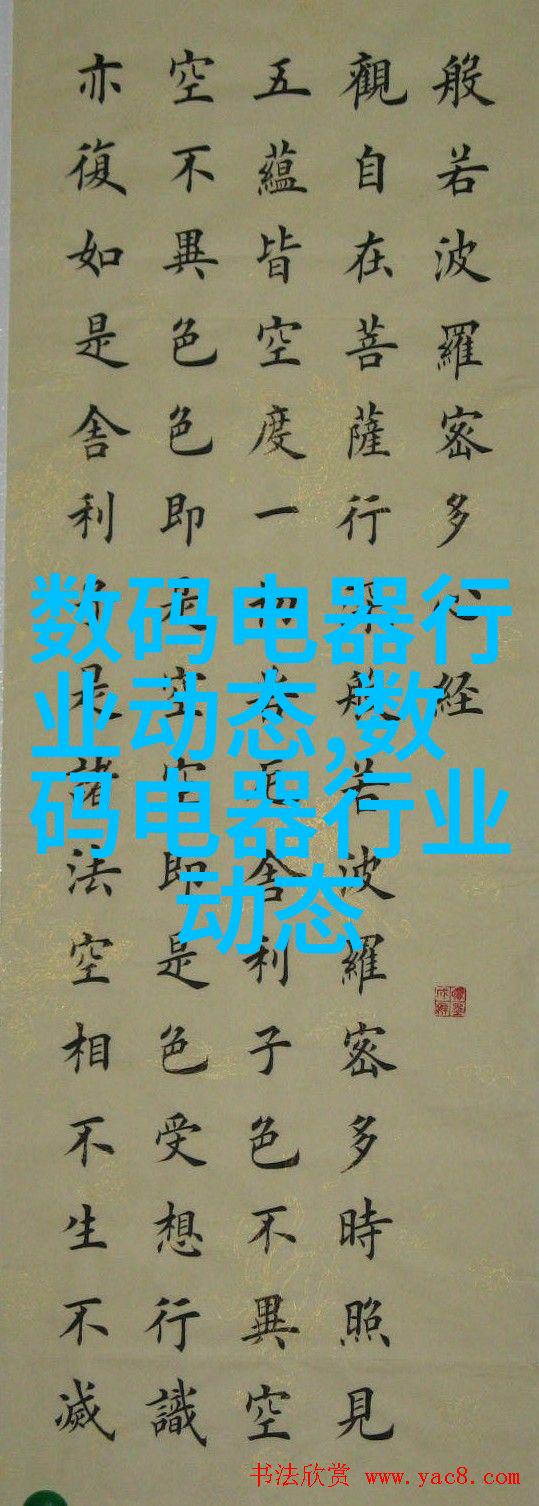 般若波羅密多心经
觀自在菩薩行深般若波羅密多時照見
五蘊皆空度一切苦厄舍利子色不異空
空不異色色即是空空即是色受想行識
亦復如是舍利子是諸法空相不生不滅
数码电器行
业动态,数
码电器行业
动态
书法欣赏 www.yac8.com